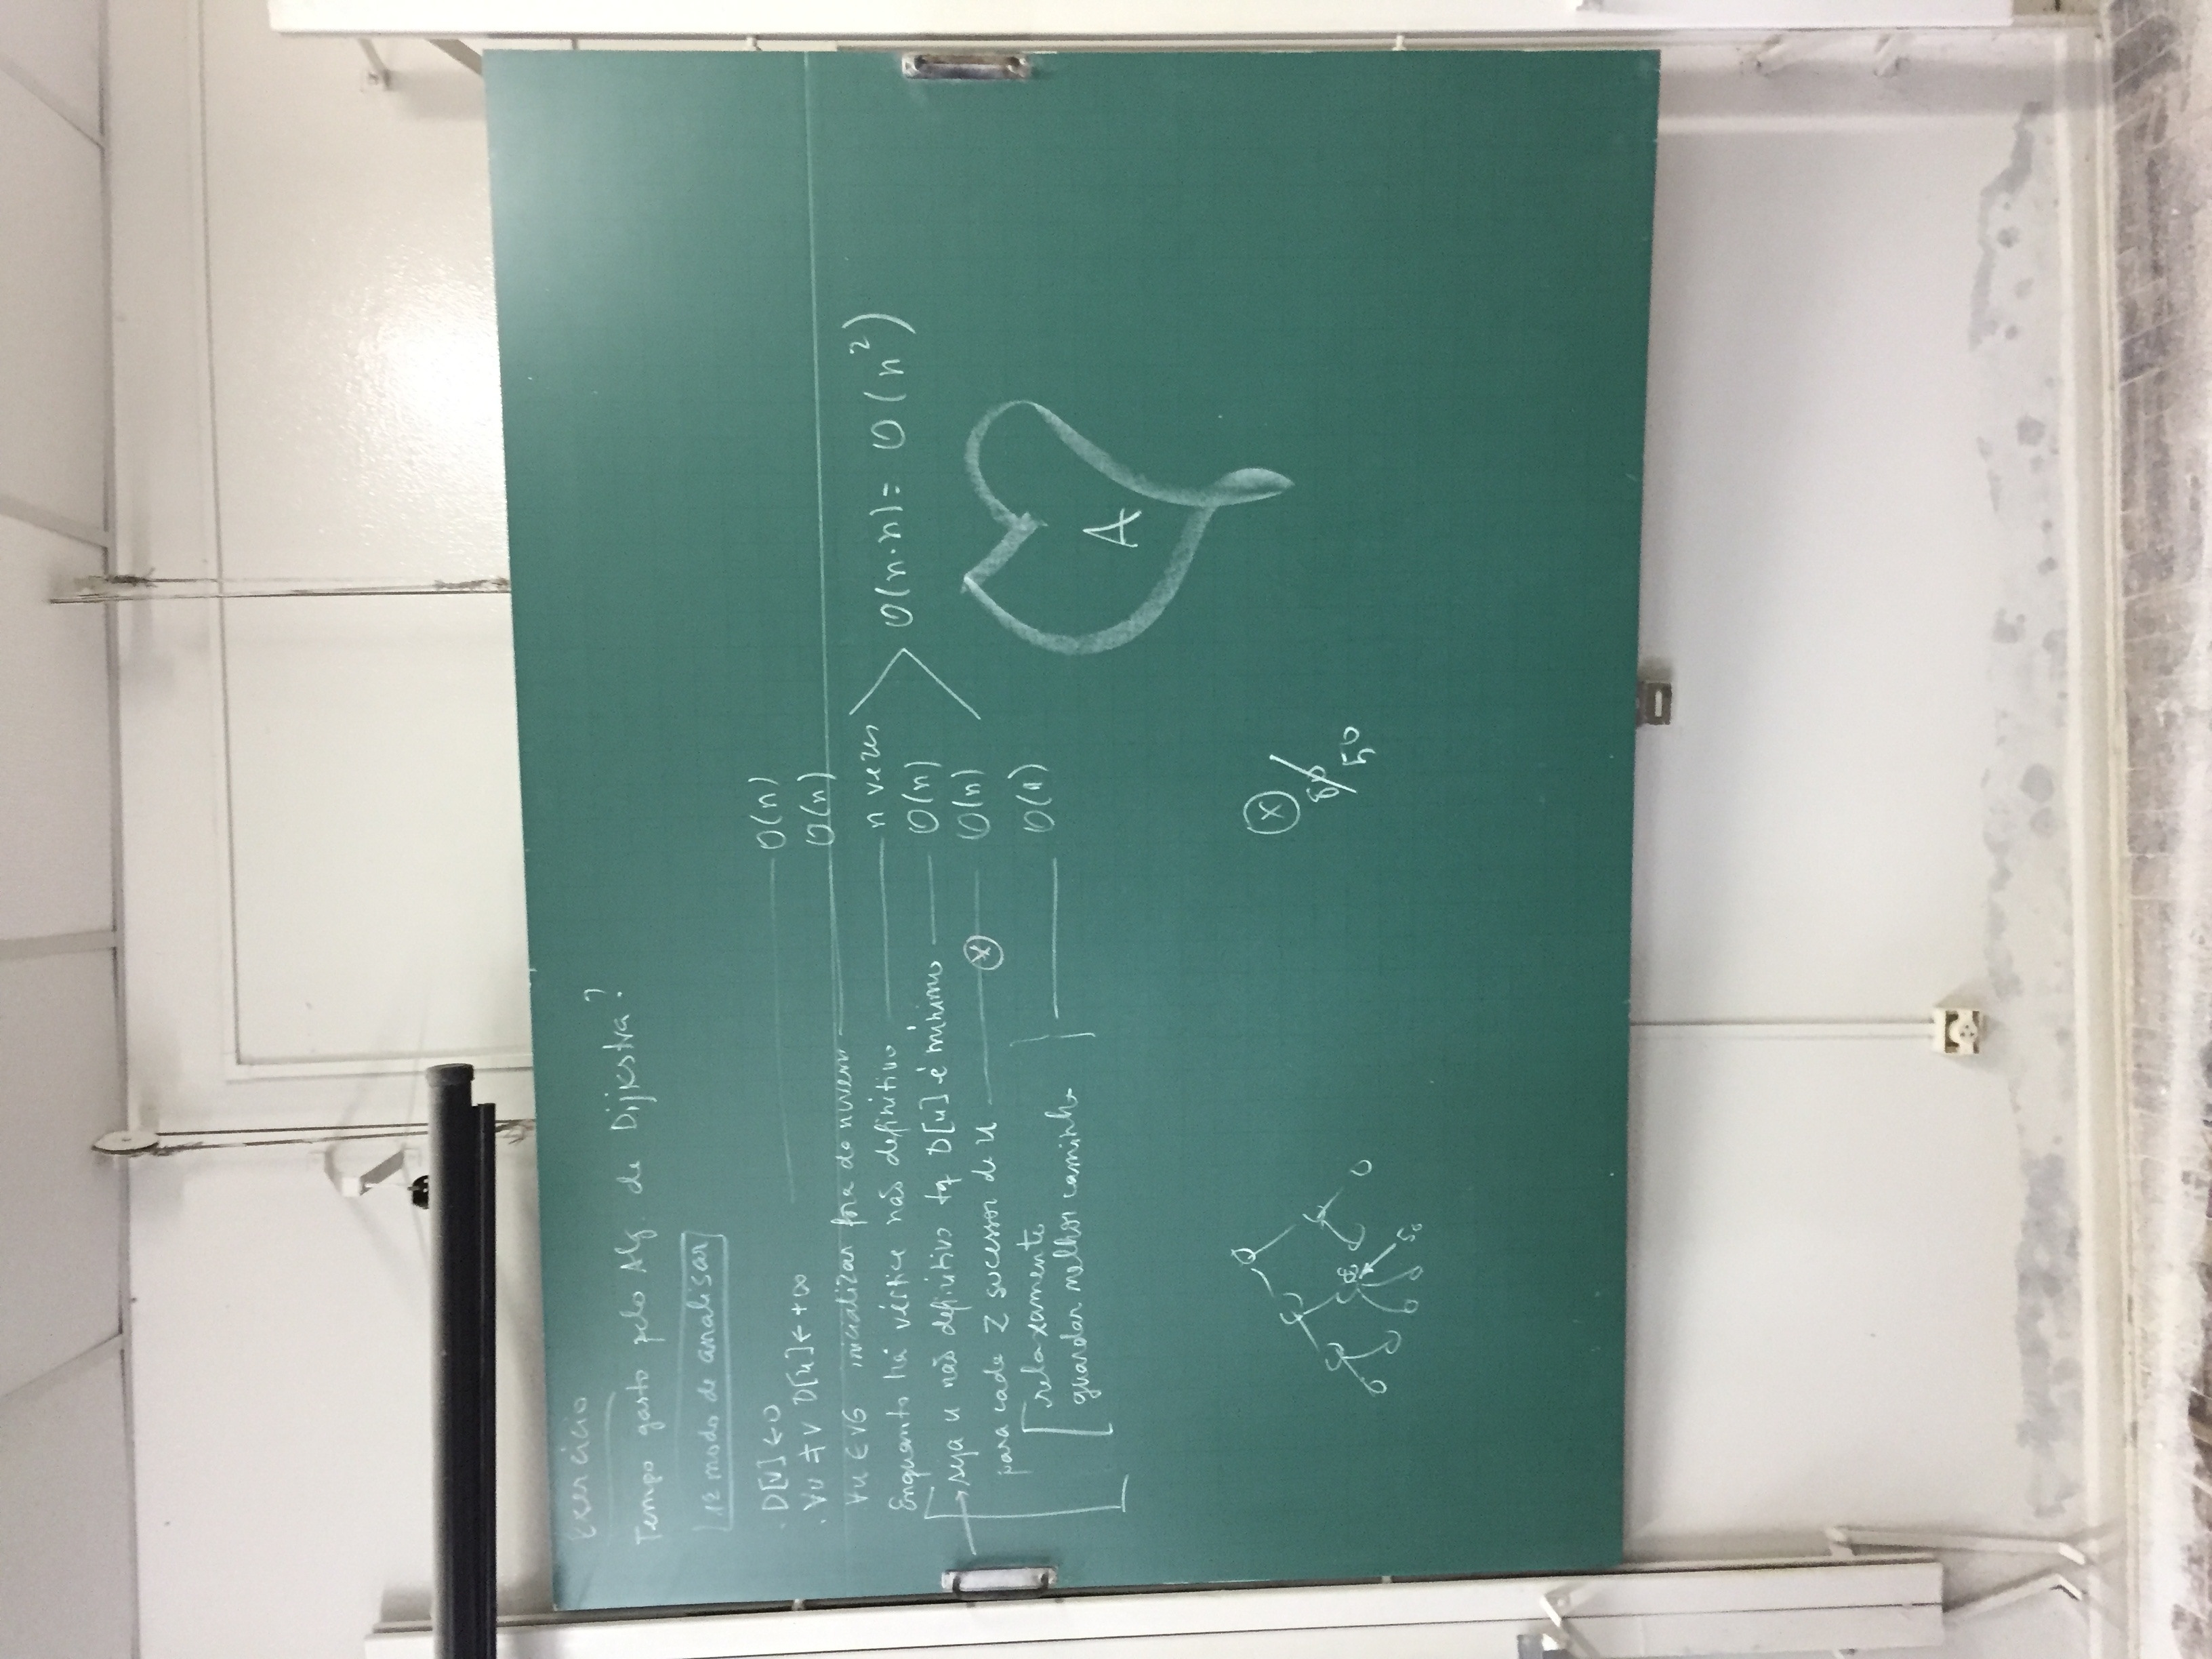 Exercício
Tempo gasto pelo Alg. de Dijkstra?
1º modo de analisar
. D[v] ← 0
. ∀u ≠ v D[u] ← +∞ O(n)
∀u ∈ VG inicializar fora da nuvem O(n)
Enquanto há vértice não definitivo n vezes
seja u não definitivo tq D[u] é mínimo O(n)
para cada z sucessor de u X O(n)
relaxamento
guardar melhor caminho O(1)
O(n·n) = O(n²)
A
X
80
50
50